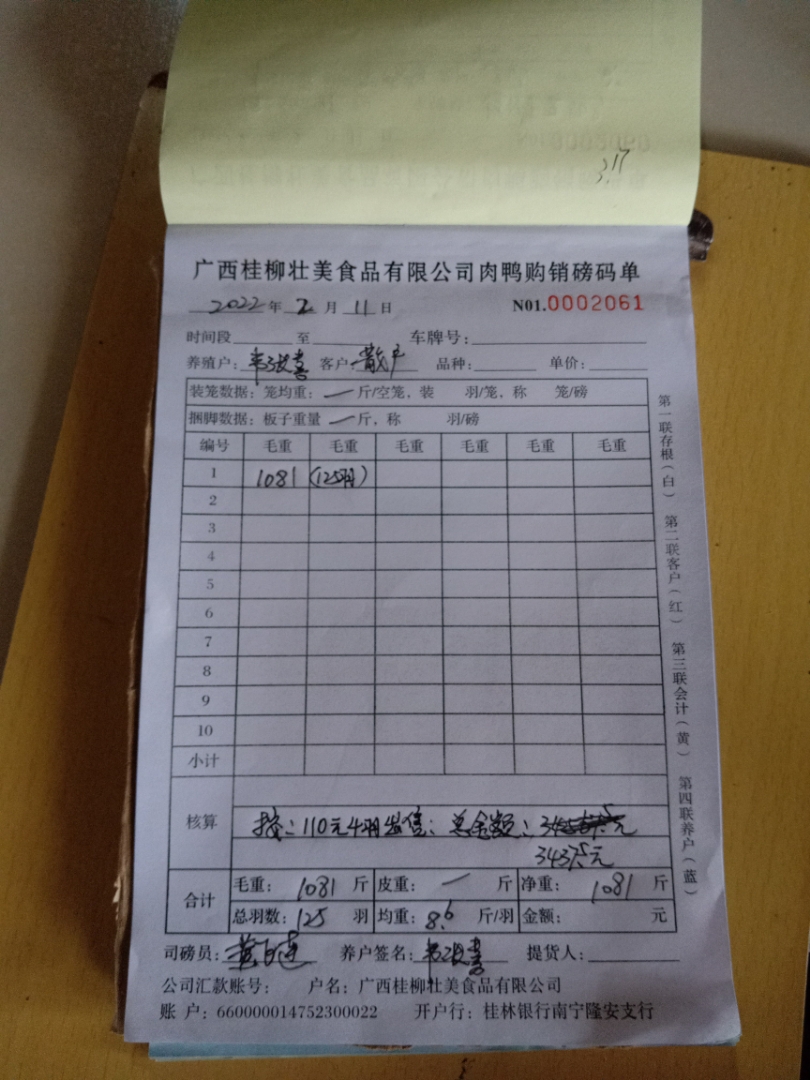 3.17
广西桂柳壮美食品有限公司肉鸭购销磅码单
2022年 2 月 11 日 N01.0002061
时间段 至 车牌号:
养殖户: 客户: 散户 品种: 单价:
装笼数据: 笼均重: 一 斤/空笼, 装 羽/笼, 称 笼/磅
捆脚数据: 板子重量 一 斤, 称 羽/磅
编号 毛重 毛重 毛重 毛重 毛重 毛重
1 1081 (125羽)
2
3
4
5
6
7
8
9
10
小计
核算 按: 110元4羽出售: 总金额:
3437.5元
合计 毛重: 1081 斤 皮重: 一 斤 净重: 1081 斤
总羽数: 125 羽 均重: 8.6 斤/羽 金额: 元
司磅员: 养户签名: 提货人:
公司汇款账号: 户名: 广西桂柳壮美食品有限公司
账 户: 660000014752300022 开户行: 桂林银行南宁隆安支行
第一联存根(白) 第二联客户(红) 第三联会计(黄) 第四联养户(蓝)